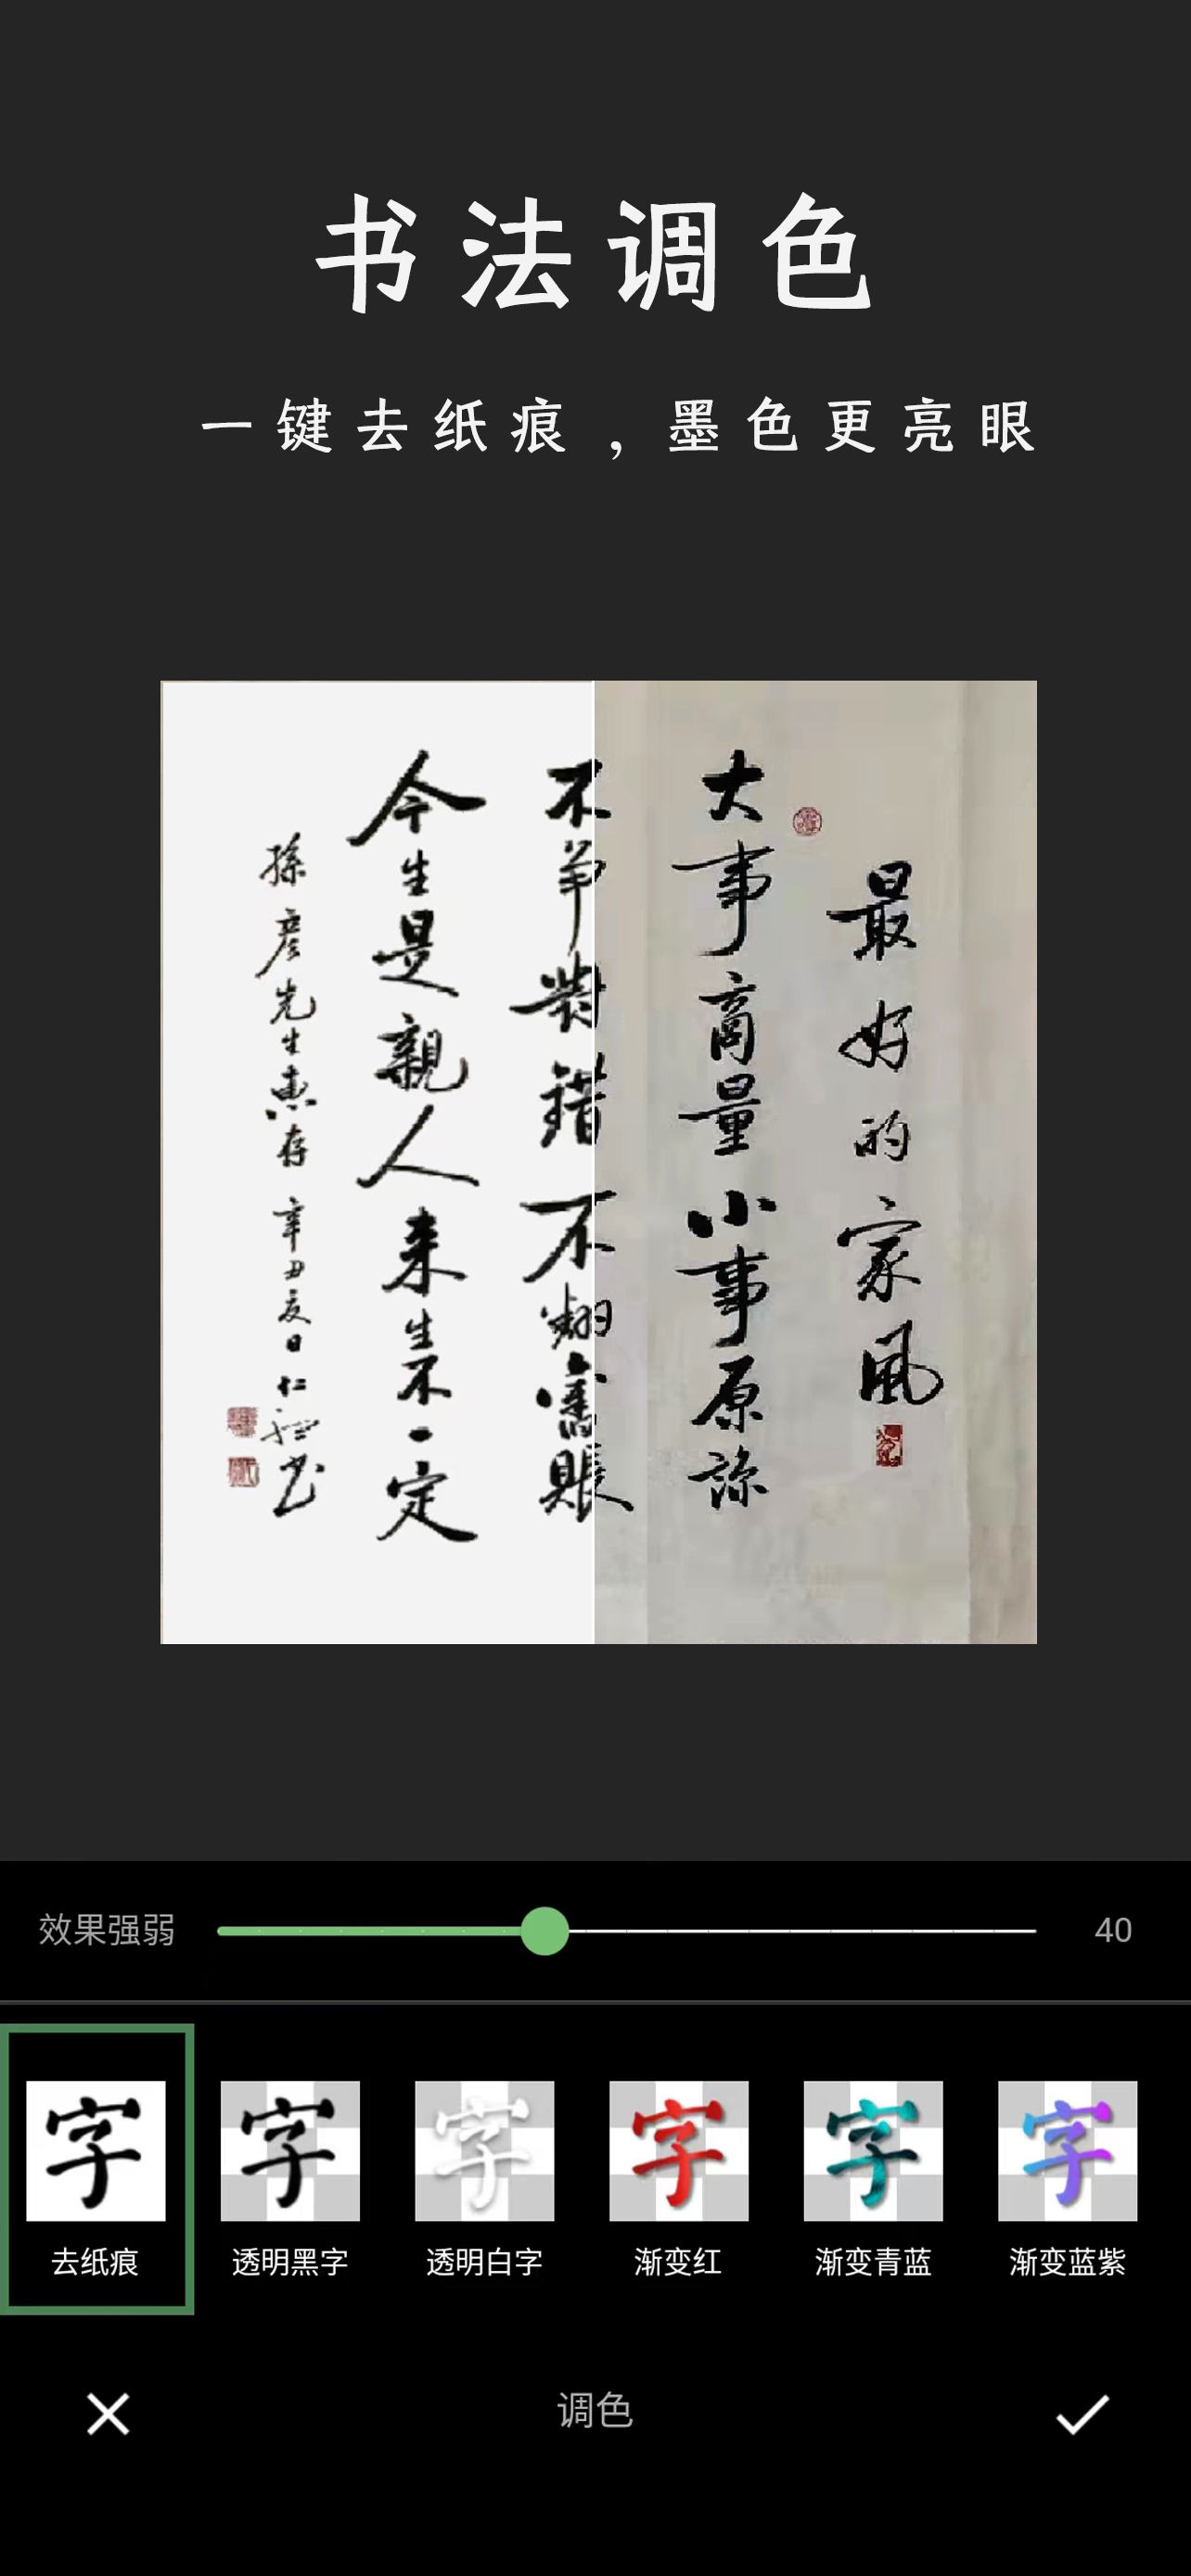 书法调色
一键去纸痕，墨色更亮眼
最好的家风
大事商量小事原諒
不爭對錯不翻舊賬
今生是親人来生不一定
孫彦先生惠存 辛丑夏日 仁 书
效果强弱
40
去纸痕
透明黑字
透明白字
渐变红
渐变青蓝
渐变蓝紫
调色